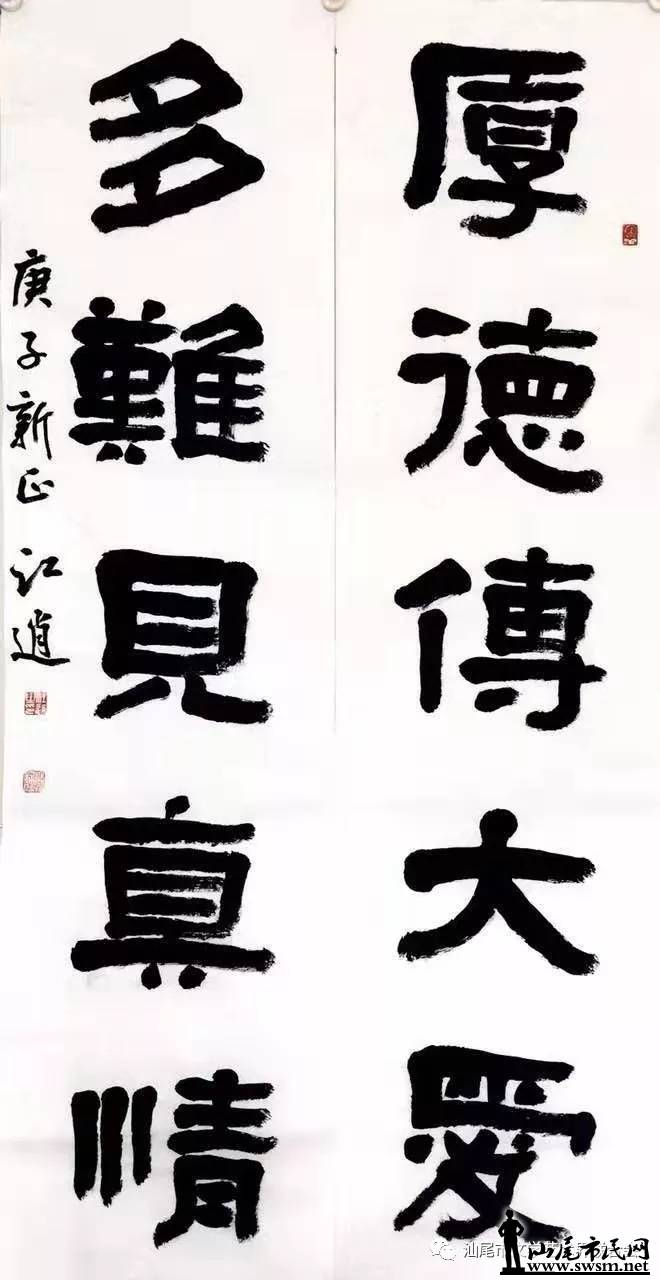 厚德傳大愛
多難見真情
庚子新正 江逍
汕尾市民网
www.swsm.net